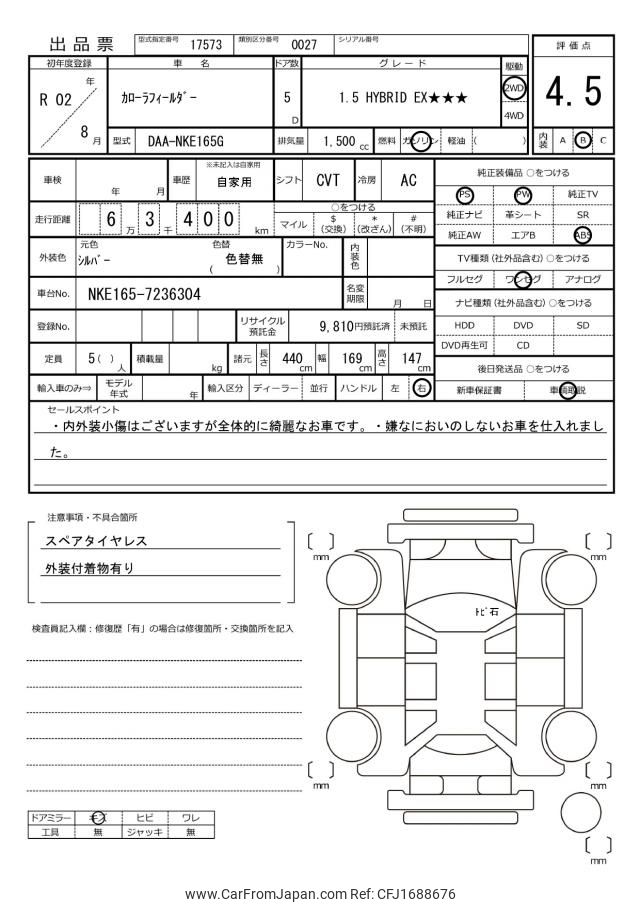 出品票 型式指定番号 17573 類別区分番号 0027 シリアル番号
評価点
4.5
内装 A B C
初年度登録 車名 ドア数 グレード 駆動
R 02 年 8 月 カローラフィールダー 5 D 1.5 HYBRID EX★★★ 2WD
4WD
型式 DAA-NKE165G 排気量 1,500 cc 燃料 ガソリン 軽油 ( )
車検 年 月 車歴 ※未記入は自家用 自家用 シフト CVT 冷房 AC
走行距離 6 万 3 千 4 0 0 km ○をつける
マイル $ (交換) * (改ざん) # (不明)
外装色 元色 シルバー 色替 ( 色替無 ) カラーNo. 内装色
車台No. NKE165-7236304 名変期限 月 日
登録No. リサイクル預託金 9,810円預託済 未預託
定員 5( ) 人 積載量 kg 諸元 長さ 440 cm 幅 169 cm 高さ 147 cm
輸入車のみ⇒ モデル年式 年 輸入区分 ディーラー 並行 ハンドル 左 右
純正装備品 ○をつける
PS PW 純正TV
純正ナビ 革シート SR
純正AW エアB ABS
TV種類 (社外品含む) ○をつける
フルセグ ワンセグ アナログ
ナビ種類 (社外品含む) ○をつける
HDD DVD SD
DVD再生可 CD
後日発送品 ○をつける
新車保証書 車輌取説
セールスポイント
・内外装小傷はございますが全体的に綺麗なお車です。・嫌なにおいのしないお車を仕入れまし
た。
注意事項・不具合箇所
スペアタイヤレス
外装付着物有り
検査員記入欄：修復歴「有」の場合は修復箇所・交換箇所を記入
〔 〕 mm
〔 〕 mm
トビ石
〔 〕 mm
〔 〕 mm
〔 〕 mm
ドアミラー キズ ヒビ ワレ
工具 無 ジャッキ 無
www.CarFromJapan.com Ref: CFJ1688676